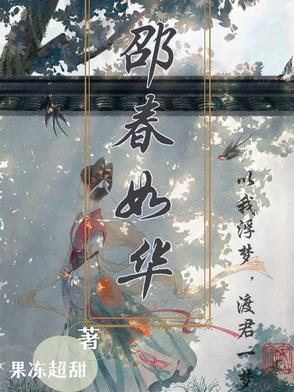 邵春如华
以我浮梦，渡君一梦
著
果冻超甜